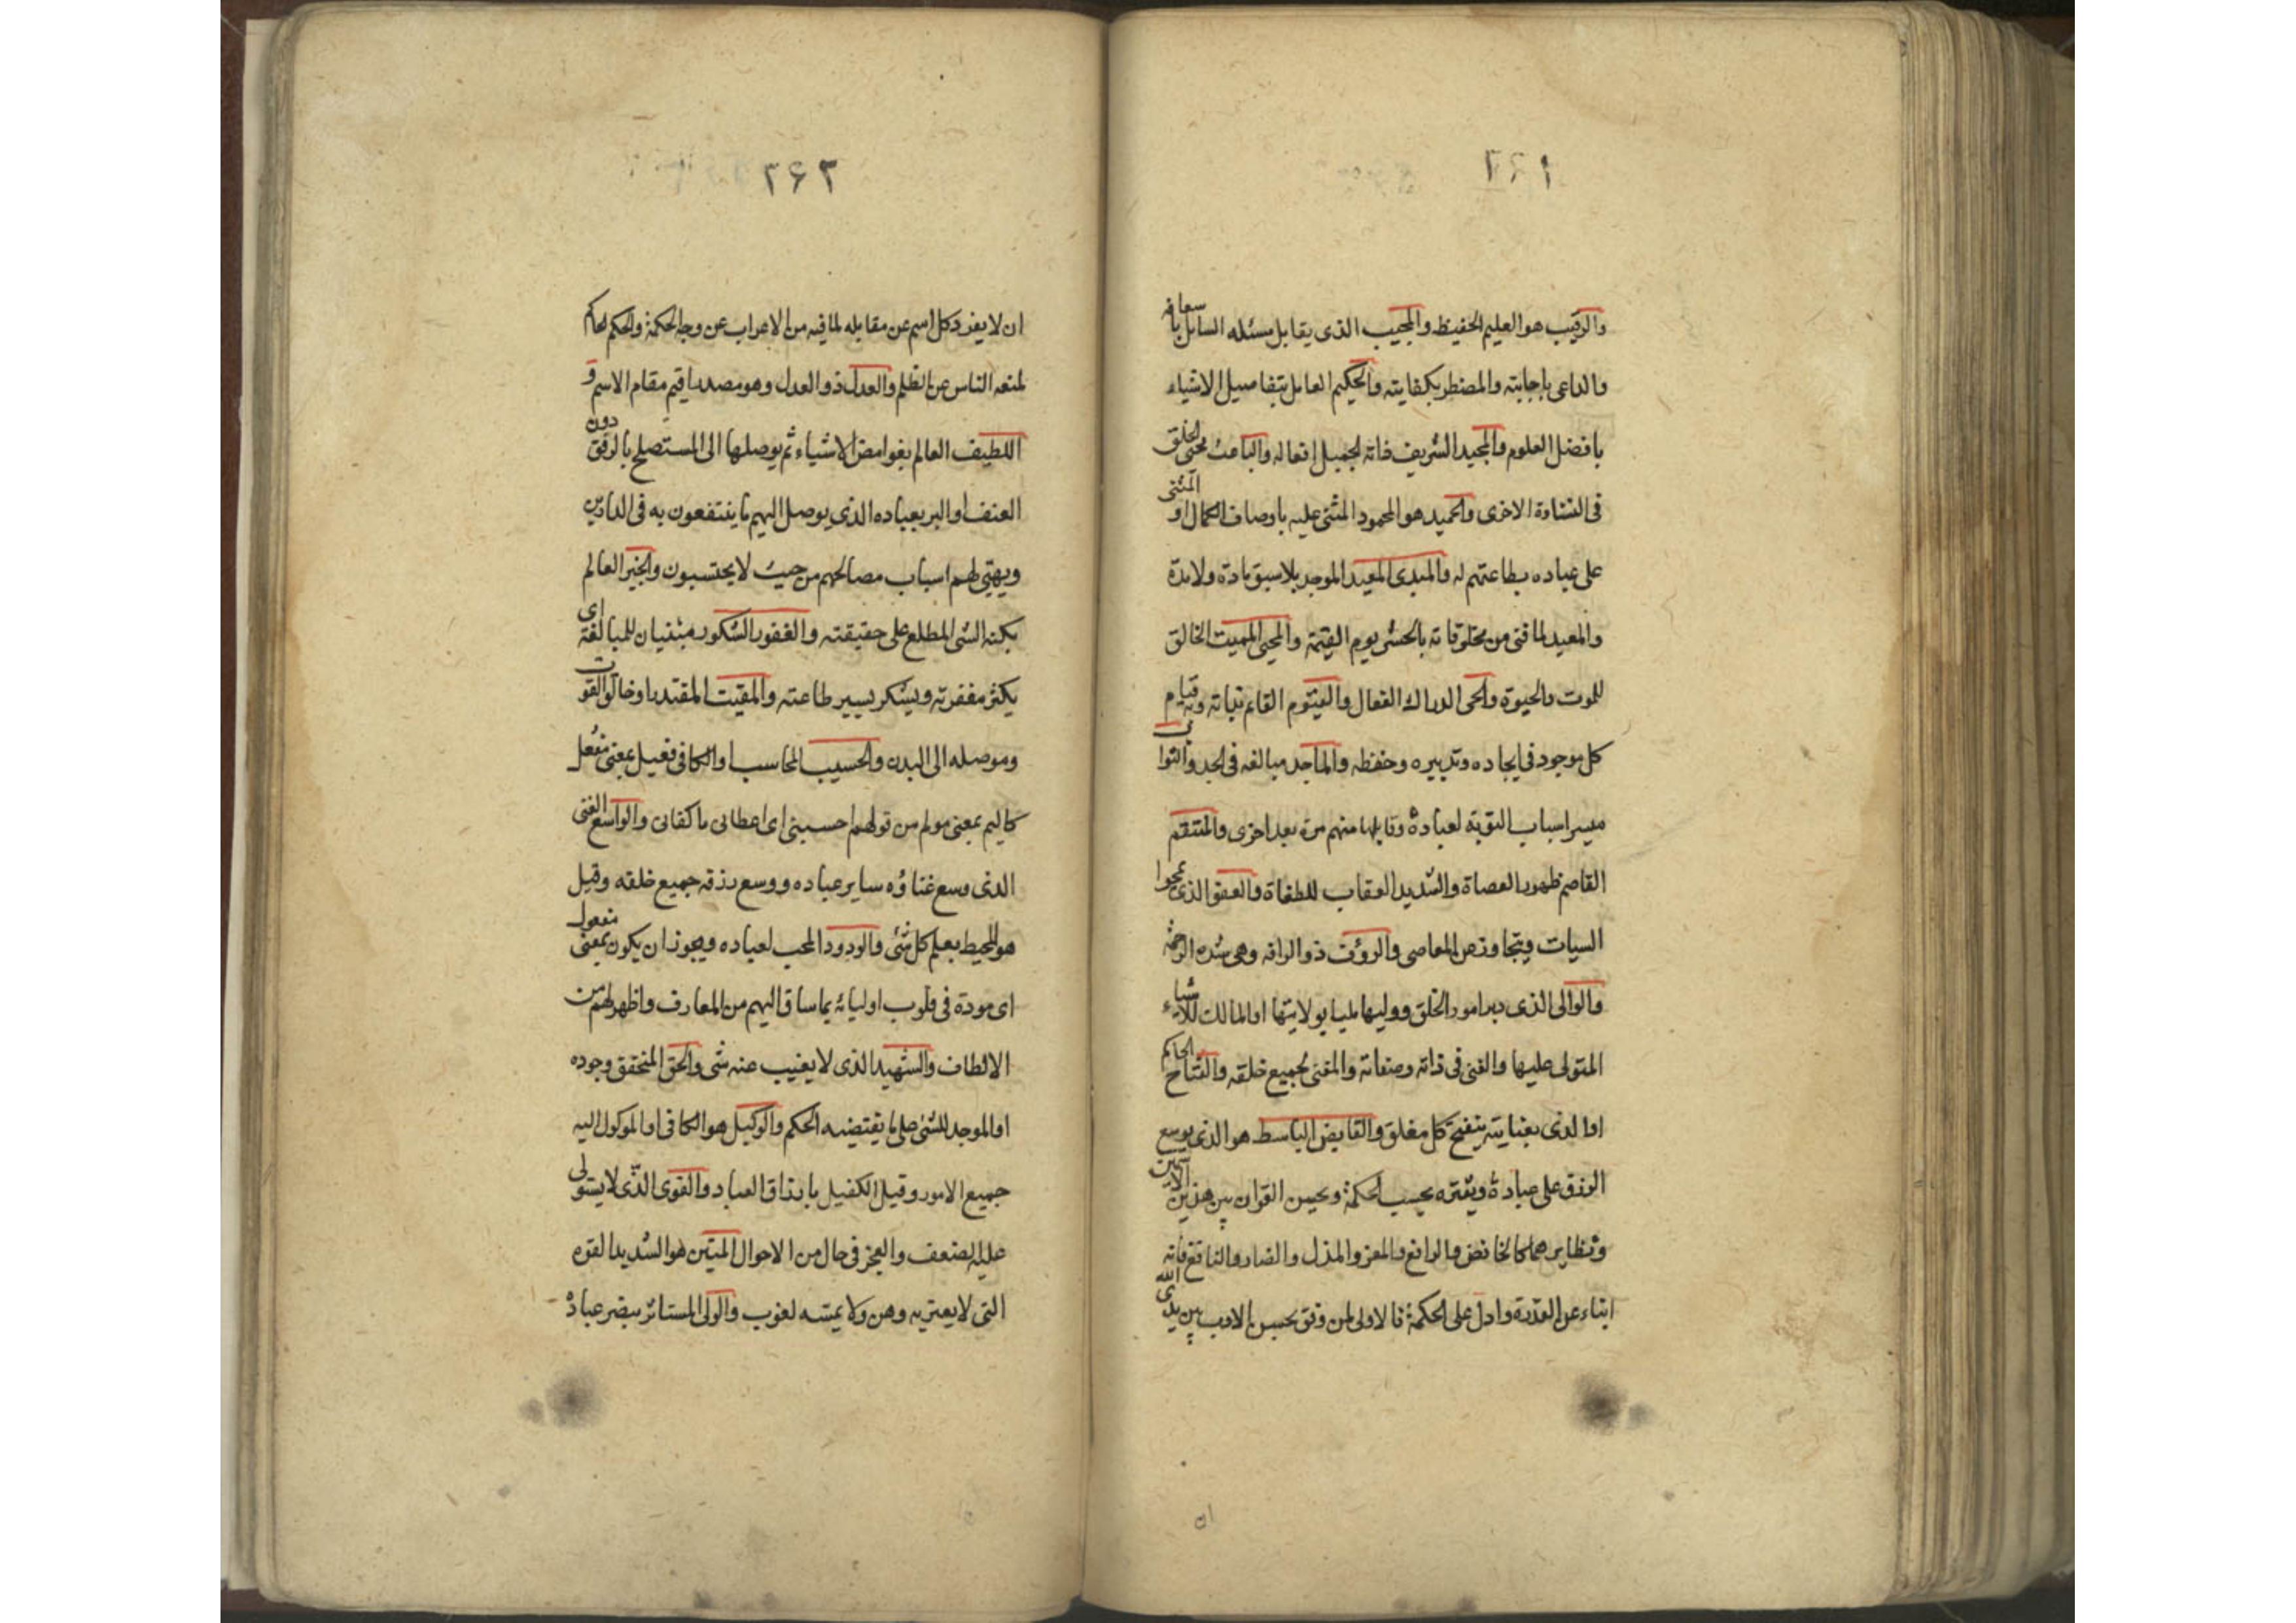 ۲۶۱
والرقيب هو العليم الحفيظ والمجيب الذى يقابل مسئله السايل باسعافه
والداعى باجابته والمضطر بكفايته والحكيم العامل بتفاصيل الاشياء
بافضل العلوم والمجيد الشريف ذاته الجميل افعاله والباعث محيى الخلق
فى النشاءة الاخرى والحميد هو المحمود المثنى عليه باوصاف الكمال او المثنى
على عباده بطاعتهم له والمبدى المعيد الموجد بلا سبق مادة ولا مدة
والمعيد لما فنى من مخلوقاته بالحشر يوم القيمة والمحيى المميت الخالق
للموت والحيوة والحى الدراك الفعال والقيوم القايم بذاته وبه قيام
كل موجود فى ايجاده وتدبيره وحفظه والماجد مبالغه فى المجد والتواب
ميسر اسباب التوبة لعباده وقابلها منهم مرة بعد اخرى والمنتقم
القاصم ظهور العصاة والشديد العقاب للطغاة والعفو الذى يمحوا
السيات ويتجاوز عن المعاصى والروف ذو الرافه وهى شده الرحمة
والوالى الذى دبر امور الخلق ووليها مليا بولايتها او المالك للاشياء
المتولى عليها والغنى فى ذاته وصفاته والمغنى لجميع خلقه والفتاح الحاكم
او الذى بعنايته ينفتح كل مغلق والقابض الباسط هو الذى يوسع
الرزق على عباده ويقتره بحسب الحكمة ويحسن القران بين هذين الاسمين
ونظايرهما كالخافض والرافع والمعز والمذل والضار والنافع فانه
انباء عن القدرة وادل على الحكمة فالاولى لمن وفق بحسن الادب بين يدى الله
ان
۲۶۲
ان لا يفرد كل اسم عن مقابله لما فيه من الاعراب عن وجه الحكمة والحكم الحاكم
لمنعه الناس عن الظلم والعدل ذو العدل وهو مصدر اقيم مقام الاسم و
اللطيف العالم بغوامض الاشياء ثم يوصلها الى المستصلح بالرفق دون
العنف او البر بعباده الذى يوصل اليهم ما ينتفعون به فى الدارين
ويهيى لهم اسباب مصالحهم من حيث لا يحتسبون والخبير العالم
بكنه الشى المطلع على حقيقته والغفور الشكور مبنيان للمبالغة اى
يكثر مغفرته ويشكر يسير طاعته والمقيت المقتدر او خالق القوات
وموصله الى البدن والحسيب المحاسب او الكافى فعيل بمعنى مفعل
كاليم بمعنى مولم من قولهم احسبنى اى اعطانى ما كفانى والواسع الغنى
الذى وسع غناؤه ساير عباده ووسع رزقه جميع خلقه وقيل
هو المحيط بعلم كل شئى والودود المحب لعباده ويجوز ان يكون بمعنى مفعول
اى مودة فى قلوب اوليائه بما ساق اليهم من المعارف واظهر لهم من
الالطاف والشهيد الذى لا يغيب عنه شى والحق المتحقق وجوده
او الموجد للشئ على ما يقتضيه الحكم والوكيل هو الكافى او الموكول اليه
جميع الامور وقيل الكفيل بارزاق العباد والقوى الذى لا يستولى
عليه الضعف والعجز فى حال من الاحوال المتين هو الشديد القوه
التى لا يعتريه وهن ولا يمسه لغوب والولى المستاثر بنصر عباده